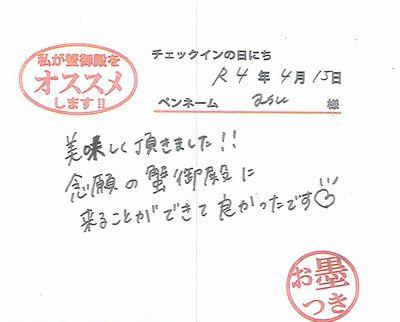 私が蟹御殿を
オススメ
します!!
チェックインの日にち
R4年4月15日
ペンネーム asu 様
美味しく頂きました!!
念願の蟹御殿に
来ることができて良かったです
お墨
つき